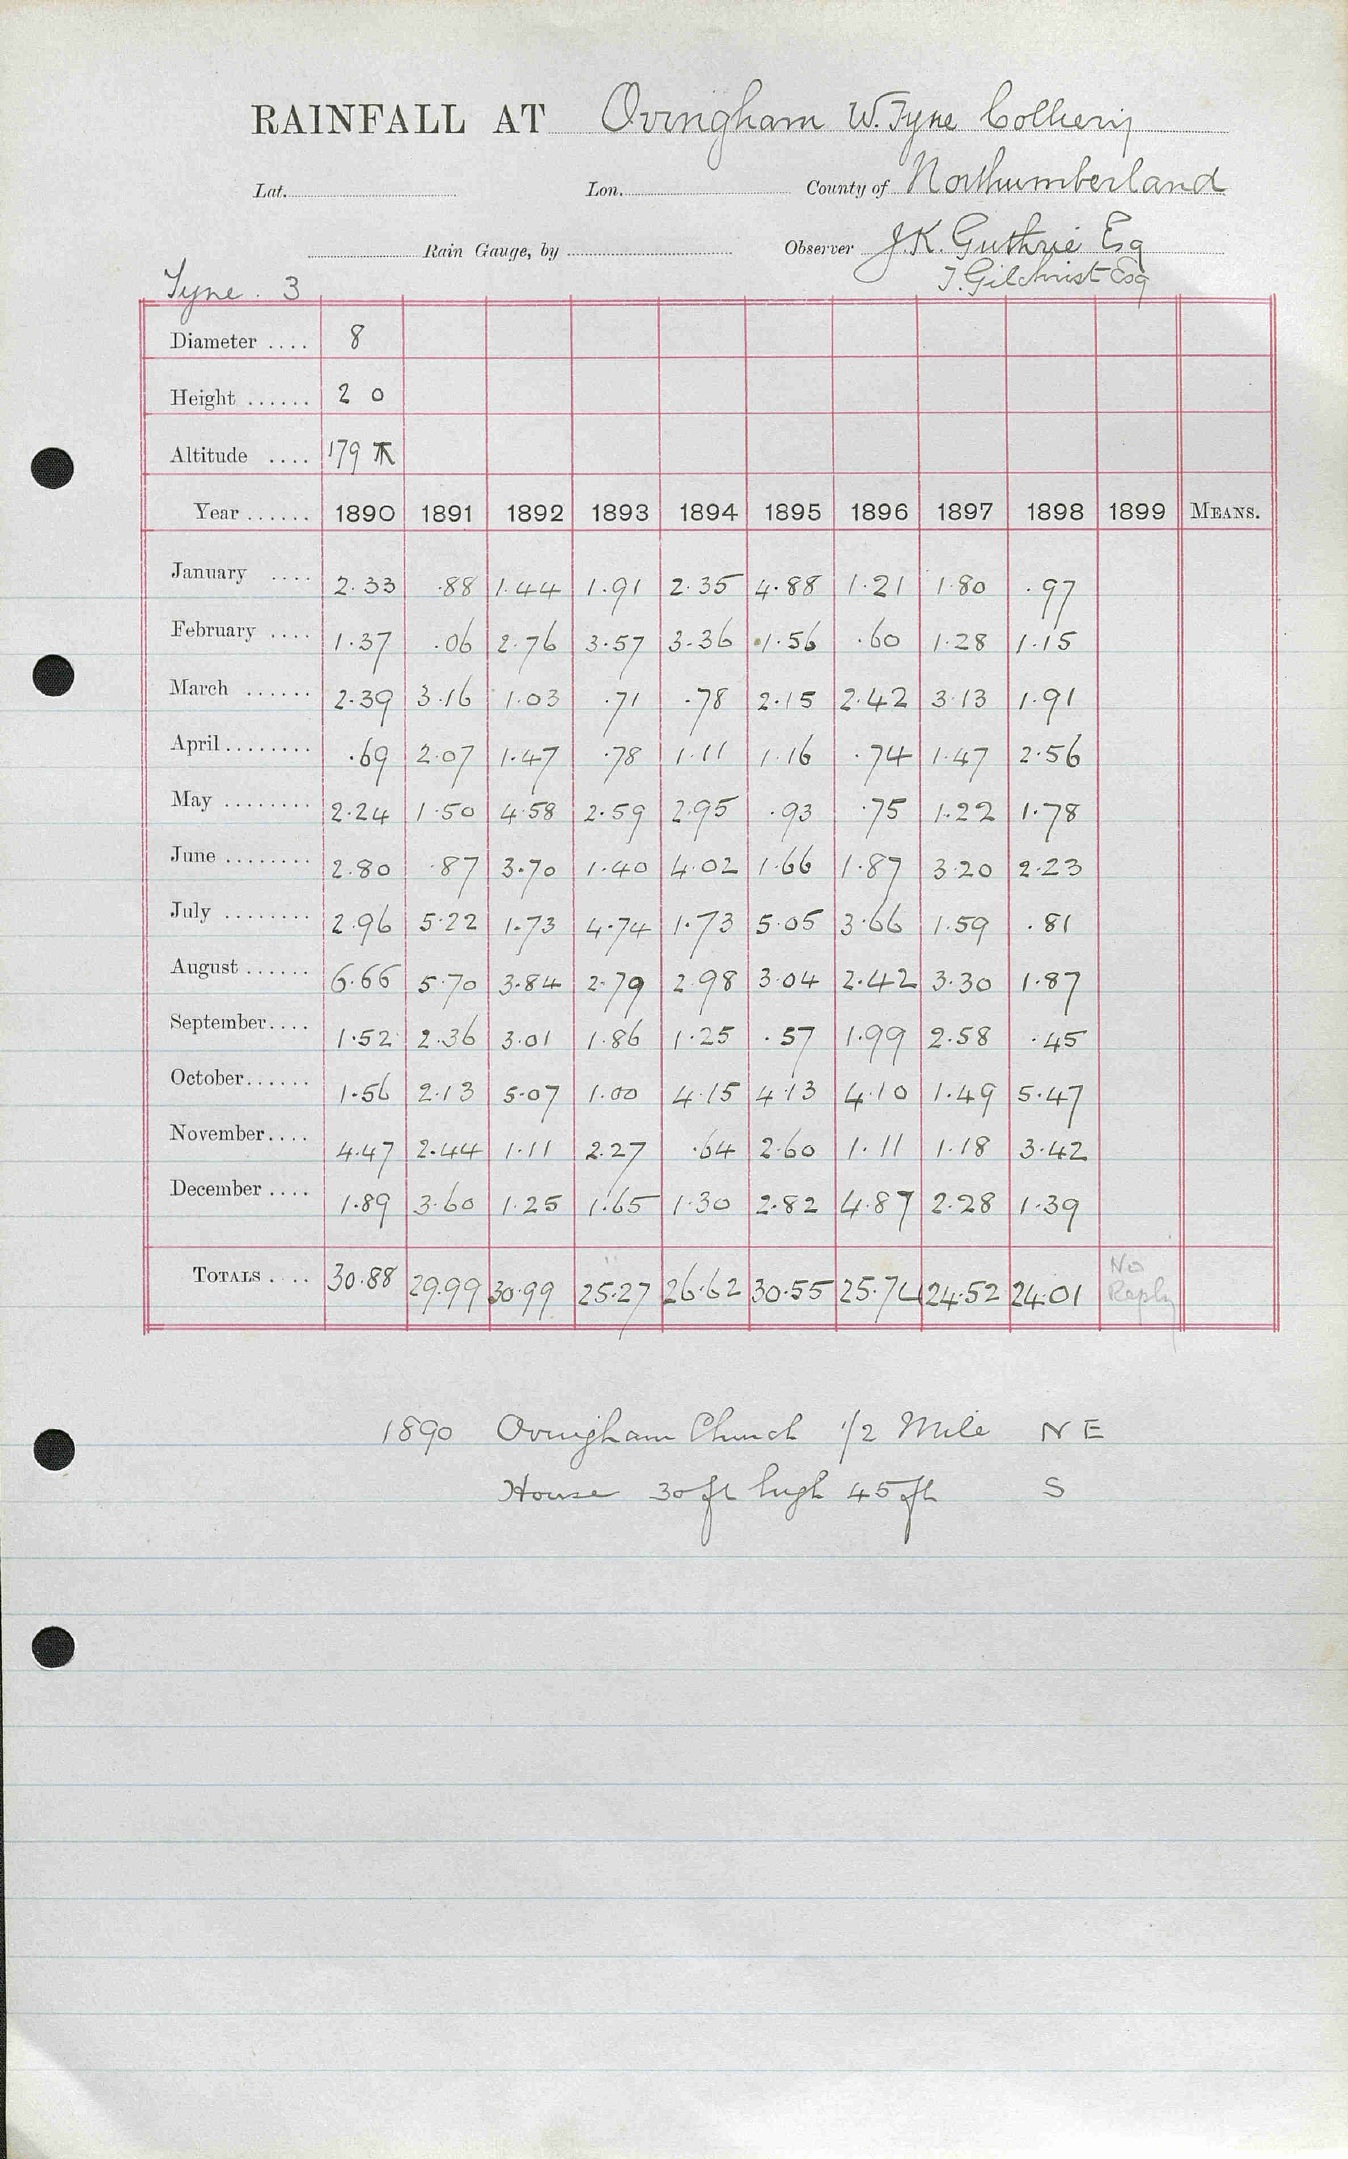 RAINFALL AT Ovingham W. Tyne Colliery
Lat. Lon. County of Northumberland
Rain Gauge, by Observer J.K. Guthrie Esq
T. Gilchrist Esq
Tyne. 3
Diameter .... 8
Height ...... 2 0
Altitude .... 179
Year ...... 1890 1891 1892 1893 1894 1895 1896 1897 1898 1899 MEANS.
January .... 2.33 .88 1.44 1.91 2.35 4.88 1.21 1.80 .97
February .... 1.37 .06 2.76 3.57 3.36 1.56 .60 1.28 1.15
March ...... 2.39 3.16 1.03 .71 .78 2.15 2.42 3.13 1.91
April ........ .69 2.07 1.47 .78 1.11 1.16 .74 1.47 2.56
May ........ 2.24 1.50 4.58 2.59 2.95 .93 .75 1.22 1.78
June ........ 2.80 .87 3.70 1.40 4.02 1.66 1.87 3.20 2.23
July ........ 2.96 5.22 1.73 4.74 1.73 5.05 3.66 1.59 .81
August ...... 6.66 5.70 3.84 2.79 2.98 3.04 2.42 3.30 1.87
September.... 1.52 2.36 3.01 1.86 1.25 .57 1.99 2.58 .45
October...... 1.56 2.13 5.07 1.00 4.15 4.13 4.10 1.49 5.47
November.... 4.47 2.44 1.11 2.27 .64 2.60 1.11 1.18 3.42
December .... 1.89 3.60 1.25 1.65 1.30 2.82 4.87 2.28 1.39
TOTALS .... 30.88 29.99 30.99 25.27 26.62 30.55 25.74 24.52 24.01 No Reply
1890 Ovingham Church 1/2 Mile N E
House 30 ft high 45 ft S